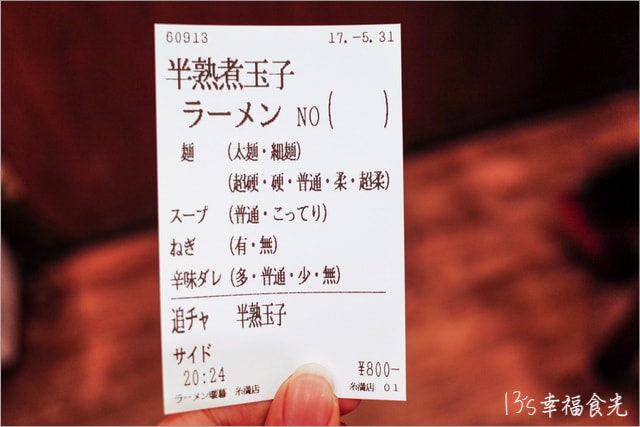 60913 17.-5.31
半熟煮玉子
ラーメン NO( )
麺 (太麺・細麺)
(超硬・硬・普通・柔・超柔)
スープ (普通・こってり)
ねぎ (有・無)
辛味ダレ (多・普通・少・無)
追チャ 半熟玉子
サイド
20:24 ¥800-
ラーメン 糸満店 糸満店 01
13's幸福食光